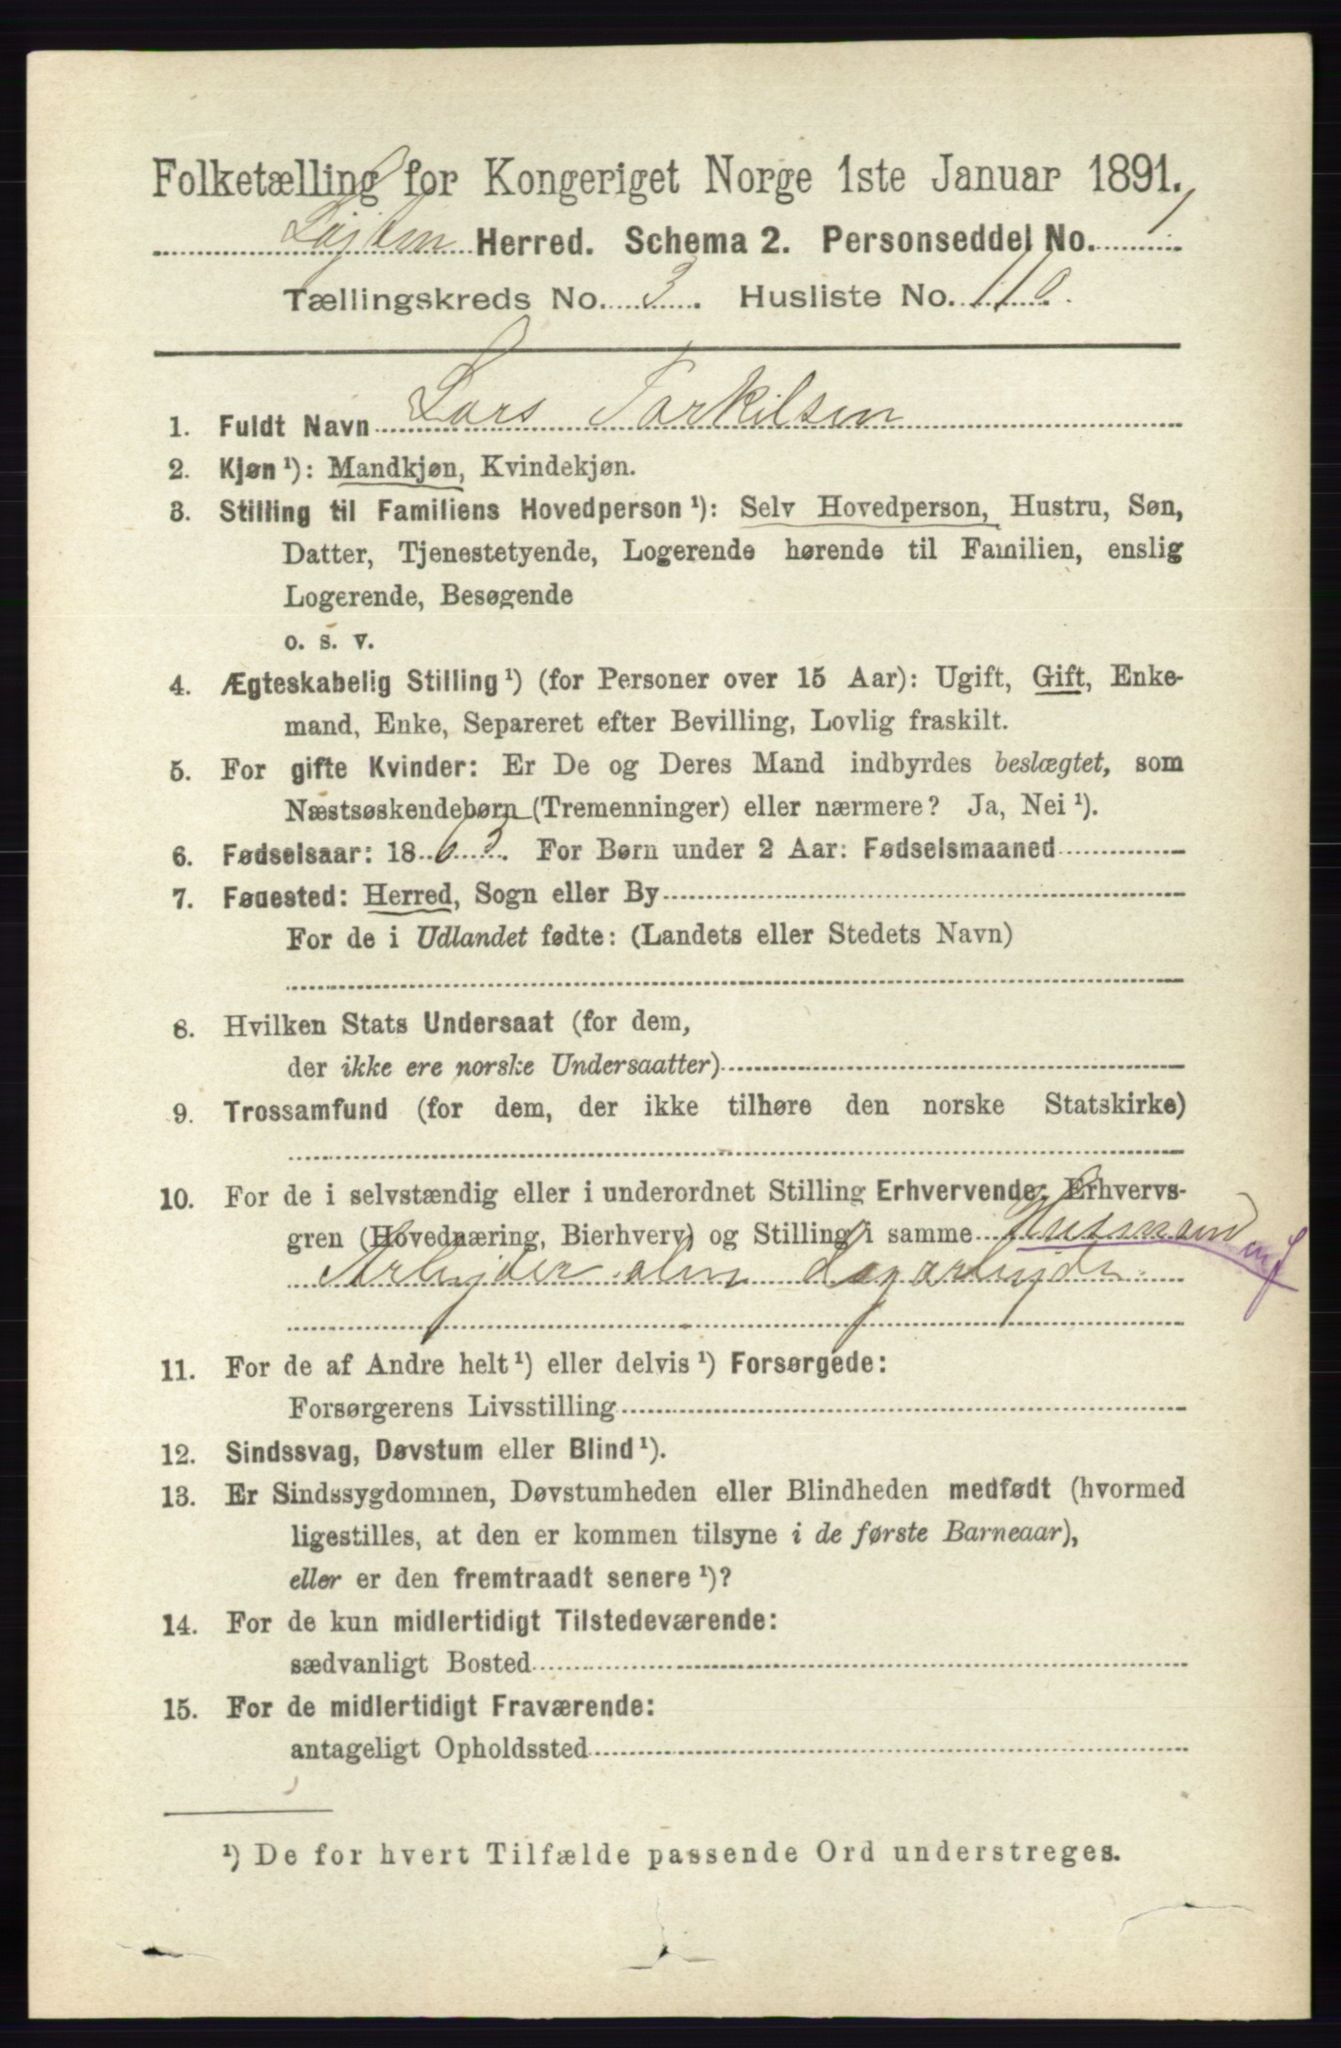 Folketælling for Kongeriget Norge 1ste Januar 1891.
Løjten Herred. Schema 2. Personseddel No. 1
Tællingskreds No. 3. Husliste No. 110.
1. Fuldt Navn Lars Torkilsen
2. Kjøn¹): Mandkjøn, Kvindekjøn.
3. Stilling til Familiens Hovedperson¹): Selv Hovedperson, Hustru, Søn,
Datter, Tjenestetyende, Logerende hørende til Familien, enslig
Logerende, Besøgende
o. s. v.
4. Ægteskabelig Stilling¹) (for Personer over 15 Aar): Ugift, Gift, Enke-
mand, Enke, Separeret efter Bevilling, Lovlig fraskilt.
5. For gifte Kvinder: Er De og Deres Mand indbyrdes beslægtet, som
Næstsøskendebørn (Tremenninger) eller nærmere? Ja, Nei¹).
6. Fødselsaar: 1863. For Børn under 2 Aar: Fødselsmaaned
7. Fødested: Herred, Sogn eller By
For de i Udlandet fødte: (Landets eller Stedets Navn)
8. Hvilken Stats Undersaat (for dem,
der ikke ere norske Undersaatter)
9. Trossamfund (for dem, der ikke tilhøre den norske Statskirke)
10. For de i selvstændig eller i underordnet Stilling Erhvervende: Erhvervs-
gren (Hovednæring, Bierhverv) og Stilling i samme Husmand
Arbejder alm Dagarbejde.
11. For de af Andre helt¹) eller delvis¹) Forsørgede:
Forsørgerens Livsstilling
12. Sindssvag, Døvstum eller Blind¹).
13. Er Sindssygdommen, Døvstumheden eller Blindheden medfødt (hvormed
ligestilles, at den er kommen tilsyne i de første Barneaar),
eller er den fremtraadt senere¹)?
14. For de kun midlertidigt Tilstedeværende:
sædvanligt Bosted
15. For de midlertidigt Fraværende:
antageligt Opholdssted
¹) De for hvert Tilfælde passende Ord understreges.